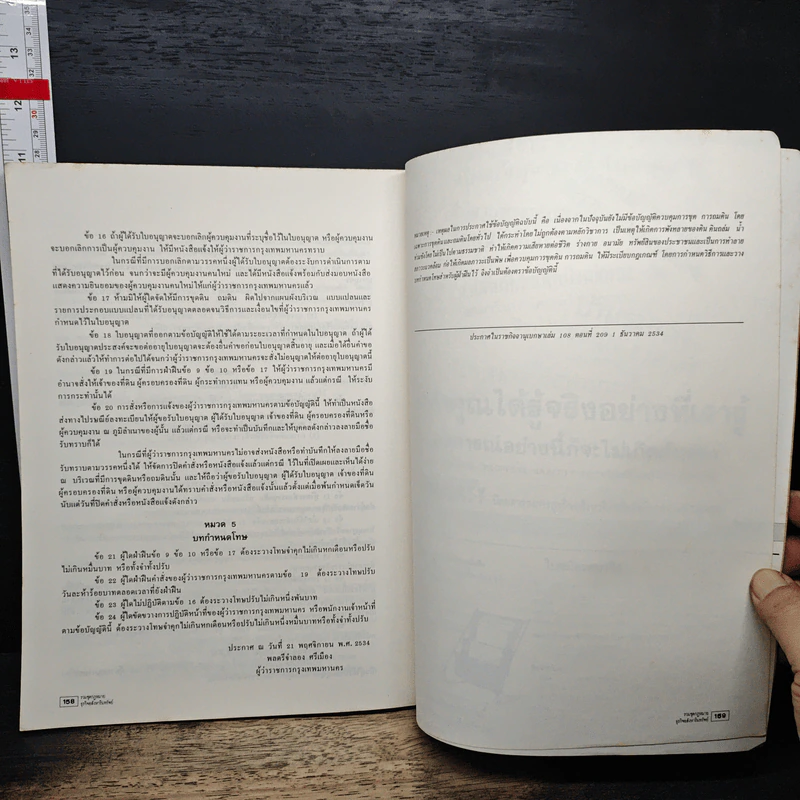 ข้อ 16 ถ้าผู้ได้รับใบอนุญาตจะบอกเลิกผู้ควบคุมงานที่ระบุชื่อไว้ในใบอนุญาต หรือผู้ควบคุมงาน
จะบอกเลิกการเป็นผู้ควบคุมงาน ให้มีหนังสือแจ้งให้ผู้ว่าราชการกรุงเทพมหานครทราบ
ในกรณีที่มีการบอกเลิกตามวรรคหนึ่งผู้ได้รับใบอนุญาตต้องระงับการดำเนินการตาม
ที่ได้รับอนุญาตไว้ก่อน จนกว่าจะมีผู้ควบคุมงานคนใหม่ และได้มีหนังสือแจ้งพร้อมกับส่งมอบหนังสือ
แสดงความยินยอมของผู้ควบคุมงานคนใหม่ให้แก่ผู้ว่าราชการกรุงเทพมหานครแล้ว
ข้อ 17 ห้ามมิให้ผู้ใดจัดให้มีการขุดดิน ถมดิน ผิดไปจากแผนผังบริเวณ แบบแปลนและ
รายการประกอบแบบแปลนที่ได้รับอนุญาตตลอดจนวิธีการและเงื่อนไขที่ผู้ว่าราชการกรุงเทพมหานคร
กำหนดไว้ในใบอนุญาต
ข้อ 18 ใบอนุญาตที่ออกตามข้อบัญญัตินี้ให้ใช้ได้ตามระยะเวลาที่กำหนดในใบอนุญาต ถ้าผู้ได้
รับใบอนุญาตประสงค์จะขอต่ออายุใบอนุญาตจะต้องยื่นคำขอก่อนใบอนุญาตสิ้นอายุ และเมื่อได้ยื่นคำขอ
ดังกล่าวแล้วให้ทำการต่อไปได้จนกว่าผู้ว่าราชการกรุงเทพมหานครจะสั่งไม่อนุญาตให้ต่ออายุใบอนุญาตนี้
ข้อ 19 ในกรณีที่มีการฝ่าฝืนข้อ 9 ข้อ 10 หรือข้อ 17 ให้ผู้ว่าราชการกรุงเทพมหานครมี
อำนาจสั่งให้เจ้าของที่ดิน ผู้ครอบครองที่ดิน ผู้กระทำการแทน หรือผู้ควบคุมงาน แล้วแต่กรณี ให้ระงับ
การกระทำนั้นได้
ข้อ 20 การสั่งหรือการแจ้งของผู้ว่าราชการกรุงเทพมหานครตามข้อบัญญัตินี้ ให้ทำเป็นหนังสือ
ส่งทางไปรษณีย์ลงทะเบียนให้ผู้ขอรับใบอนุญาต ผู้ได้รับใบอนุญาต เจ้าของที่ดิน ผู้ครอบครองที่ดินหรือ
ผู้ควบคุมงาน ณ ภูมิลำเนาของผู้นั้น แล้วแต่กรณี หรือจะทำเป็นบันทึกและให้บุคคลดังกล่าวลงลายมือชื่อ
รับทราบก็ได้
ในกรณีที่ผู้ว่าราชการกรุงเทพมหานครไม่อาจส่งหนังสือหรือทำบันทึกให้ลงลายมือชื่อ
รับทราบตามวรรคหนึ่งได้ ให้จัดการปิดคำสั่งหรือหนังสือแจ้งแล้วแต่กรณี ไว้ในที่เปิดเผยและเห็นได้ง่าย
ณ บริเวณที่มีการขุดดินหรือถมดินนั้น และให้ถือว่าผู้ขอรับใบอนุญาต ผู้ได้รับใบอนุญาต เจ้าของที่ดิน
ผู้ครอบครองที่ดิน หรือผู้ควบคุมงานได้ทราบคำสั่งหรือหนังสือแจ้งนั้นแล้วตั้งแต่เมื่อพ้นกำหนดเจ็ดวัน
นับแต่วันที่ปิดคำสั่งหรือหนังสือแจ้งดังกล่าว
หมวด 5
บทกำหนดโทษ
ข้อ 21 ผู้ใดฝ่าฝืนข้อ 9 ข้อ 10 หรือข้อ 17 ต้องระวางโทษจำคุกไม่เกินหกเดือนหรือปรับ
ไม่เกินหมื่นบาท หรือทั้งจำทั้งปรับ
ข้อ 22 ผู้ใดฝ่าฝืนคำสั่งของผู้ว่าราชการกรุงเทพมหานครตามข้อ 19 ต้องระวางโทษปรับ
วันละห้าร้อยบาทตลอดเวลาที่ยังฝ่าฝืน
ข้อ 23 ผู้ใดไม่ปฏิบัติตามข้อ 16 ต้องระวางโทษปรับไม่เกินหนึ่งพันบาท
ข้อ 24 ผู้ใดขัดขวางการปฏิบัติหน้าที่ของผู้ว่าราชการกรุงเทพมหานคร หรือพนักงานเจ้าหน้าที่
ตามข้อบัญญัตินี้ ต้องระวางโทษจำคุกไม่เกินหกเดือนหรือปรับไม่เกินหนึ่งหมื่นบาทหรือทั้งจำทั้งปรับ
ประกาศ ณ วันที่ 21 พฤศจิกายน พ.ศ. 2534
พลตรีจำลอง ศรีเมือง
ผู้ว่าราชการกรุงเทพมหานคร
158
รวมชุดกฎหมาย
ธุรกิจอสังหาริมทรัพย์
หมายเหตุ:- เหตุผลในการประกาศใช้ข้อบัญญัติฉบับนี้ คือ เนื่องจากในปัจจุบันยังไม่มีข้อบัญญัติควบคุมการขุด การถมดิน โดย
เฉพาะการขุดดินและถมดินโดยทั่วไป ได้กระทำโดยไม่ถูกต้องตามหลักวิชาการ เป็นเหตุให้เกิดการพังทลายของดิน ดินถล่ม น้ำ
ท่วมขังโดยไม่เป็นไปตามธรรมชาติ ทำให้เกิดความเสียหายต่อชีวิต ร่างกาย อนามัย ทรัพย์สินของประชาชนและเป็นการทำลาย
ก่อให้เกิดมลภาวะเป็นพิษ เพื่อควบคุมการขุดดิน การถมดิน ให้มีระเบียบกฎเกณฑ์ โดยการกำหนดวิธีการและวาง
บทกำหนดโทษสำหรับผู้ฝ่าฝืนไว้ จึงจำเป็นต้องตราข้อบัญญัตินี้
ประกาศในราชกิจจานุเบกษาเล่ม 108 ตอนที่ 209 1 ธันวาคม 2534
รวมชุดกฎหมาย
ธุรกิจอสังหาริมทรัพย์
159
13
12
11
33
32
31
30
29
28